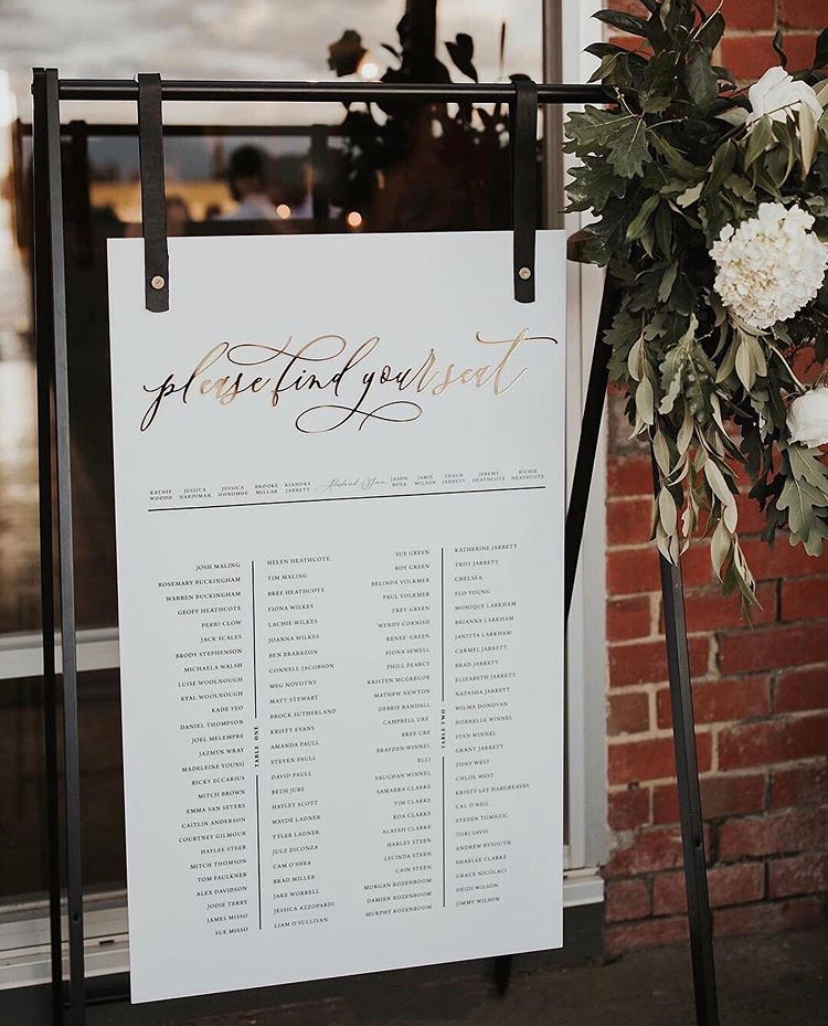 please find your seat
KATHIE WOODS
JESSICA HARDIMAN
JESSICA DONOHOE
BROOKE MILLAR
KIANDRA JARRETT
JASON ROYA
JAMIE WILSON
SHAUN JARRETT
JEREMY HEATHCOTE
RICHIE HEATHCOTE
JOSH MALING
ROSEMARY BUCKINGHAM
WARREN BUCKINGHAM
GEOFF HEATHCOTE
PERRI CLOW
JACK SCALES
BRODY STEPHENSON
MICHAELA WALSH
LUISE WOOLNOUGH
KYAL WOOLNOUGH
KADE YEO
DANIEL THOMPSON
JOEL MELEMPRE
JAZMYN WRAY
MADELEINE YOUNG
RICKY ECCARIUS
MITCH BROWN
EMMA VAN SETERS
CAITLIN ANDERSON
COURTNEY GILMOUR
HAYLEE STEER
MITCH THOMSON
TOM FAULKNER
ALEX DAVIDSON
JODIE TERRY
JAMES MISSO
SUE MISSO
TABLE ONE
HELEN HEATHCOTE
TIM MALING
BREE HEATHCOTE
FIONA WILKES
LACHIE WILKES
JOANNA WILKES
BEN BRABAZON
CONNELL JACOBSON
MEG NOVOTNY
MATT STEWART
BROCK SUTHERLAND
KRISTY EVANS
AMANDA PAULL
STEVEN PAULL
DAVID PAULL
BETH JURY
HAYLEY SCOTT
WAYDE LADNER
TYLER LADNER
JULZ DICONZA
CAM O'SHEA
BRAD MILLER
JAKE WORRELL
JESSICA AZZOPARDI
LIAM O'SULLIVAN
SUE GREEN
ROY GREEN
BELINDA VOLKMER
PAUL VOLKMER
TREV GREEN
WENDY CORNISH
RENEE' GREEN
FIONA SEWELL
PHILL PEARCE
KRISTEN MCGREGOR
MATHEW NEWTON
DEBBIE RANDALL
CAMPBELL URE
BREE URE
BRAYDEN WINNEL
ELLI
VAUGHAN WINNEL
SAMARRA CLARKE
TIM CLARKE
KOA CLARKE
ALAYAH CLARKE
HARLEY STEEN
LUCINDA STEEN
CAIN STEEN
MORGAN ROZENBOOM
DAMIEN ROZENBOOM
MURPHY ROZENBOOM
TABLE TWO
KATHERINE JARRETT
TROY JARRETT
CHELSEA
FLO YOUNG
MONIQUE LARKHAM
BRIANNA LARKHAM
JANITTA LARKHAM
CARMEL JARRETT
BRAD JARRETT
ELIZABETH JARRETT
NATASHA JARRETT
WILMA DONOVAN
NORRELLE WINNEL
STAN WINNEL
GRANT JARRETT
TONY WEST
CHLOE WEST
KRISTY LEE HARGREAVES
CAL O'NEIL
STEVEN TOMAZIC
TORI SAVIS
ANDREW BYSOUTH
SHAELEE CLARKE
GRACE NICOLACI
HEIDI WILSON
JIMMY WILSON